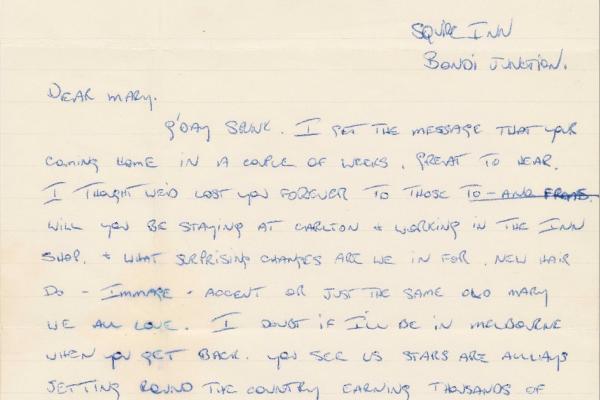 SQUIRE INN
BONDI JUNCTION.
DEAR MARY.
G'DAY SPUNK. I GET THE MESSAGE THAT YOUR
COMING HOME IN A COUPLE OF WEEKS. GREAT TO HEAR.
I THOUGHT WE'D LOST YOU FOREVER TO THOSE TO-AND FROMS.
WILL YOU BE STAYING AT CARLTON + WORKING IN THE INN
SHOP. + WHAT SURPRISING CHANGES ARE WE IN FOR. NEW HAIR
DO - IMMAGE - ACCENT OR JUST THE SAME OLD MARY
WE ALL LOVE. I DOUBT IF I'LL BE IN MELBOURNE
WHEN YOU GET BACK. YOU SEE US STARS ARE ALLWAYS
JETTING ROUND THE COUNTRY EARNING THOUSANDS OF